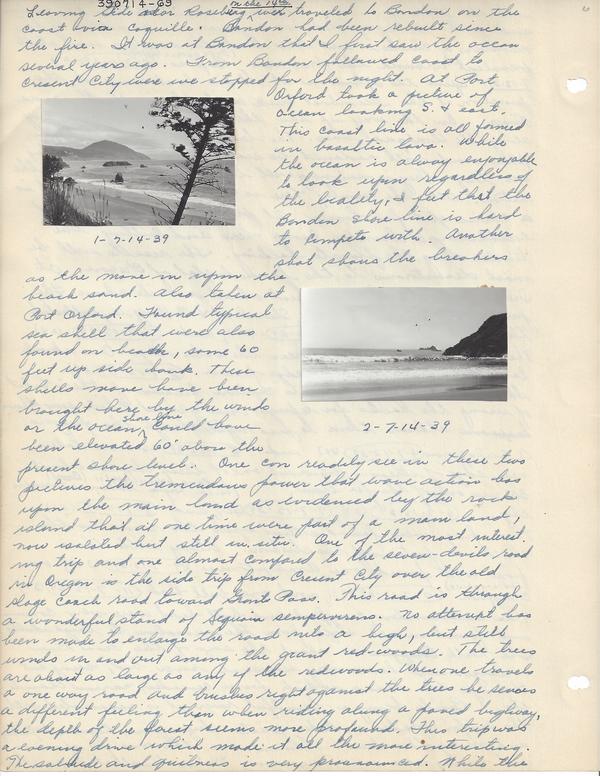 390714-69
on the 14th
Leaving Roseburg we traveled to Bandon on the
coast via Coquille. Bandon had been rebuilt since
the fire. It was at Bandon that I first saw the ocean
several years ago. From Bandon followed coast to
Cresent City were we stopped for the night. At Port
Orford took a picture of
ocean looking S. & east.
This coast line is all formed
in basaltic lava. While
the ocean is alway enjoyable
to look upon regardless of
the locality, I feel that the
Bandon shore line is hard
to compete with. Another
shot shows the breakers
1-7-14-39
as the move in upon the
beach sand. Also taken at
Port Orford. Found typical
sea shell that were also
found on beach, some 60
feet up side bank. These
shells move have been
brought here by the winds
or the ocean shore line could have
been elevated 60' above the
2-7-14-39
present shore level. One can readily see in these two
pictures the tremendous power that wave action has
upon the main land as evidenced by the rock
island that at one time were part of a main land,
now isolated but still in situ. One of the most interest-
ing trip and one almost compared to the seven-devils road
in Oregon is the side trip from Cresent City over the old
stage coach road toward Grants Pass. This road is through
a wonderful stand of Sequoia sempervirens. No attempt has
been made to enlarge the road into a high, but still
winds in and out among the giant red-woods. The trees
are about as large as any of the redwoods. When one travels
a one way road and brushes right against the trees he senses
a different feeling than when riding along a paved highway,
the depth of the forest seems more profound. This trip was
a evening drive which made it all the more interesting.
The solitude and quitness is very pronounced. While the